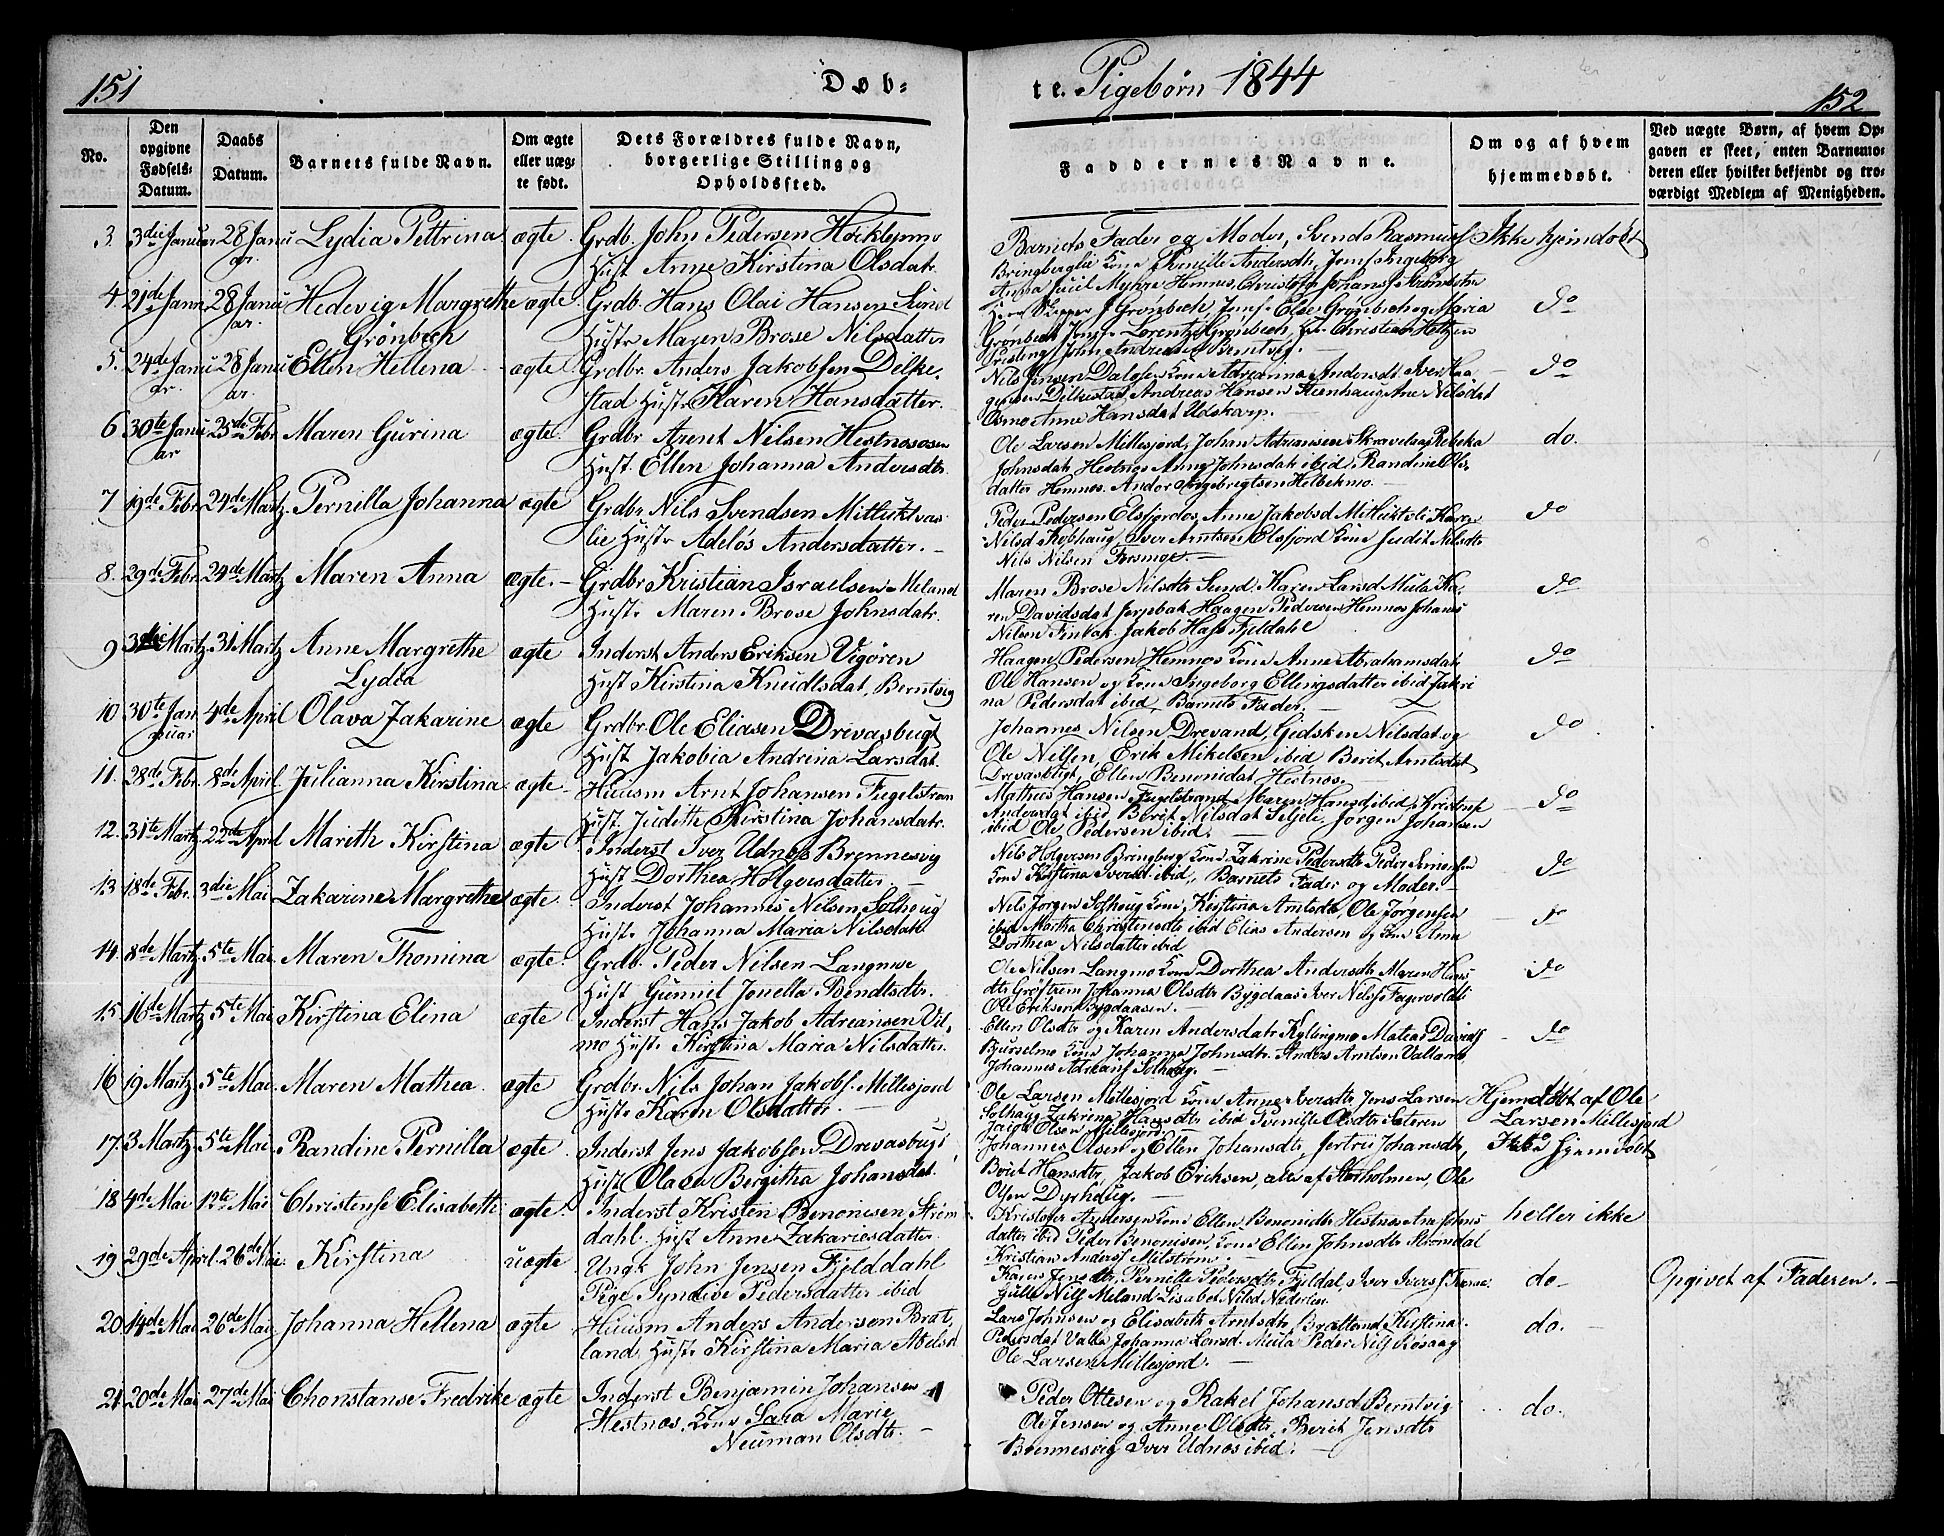 151
Døb-
te. Pigebørn 1844
152
No.
Den opgivne Fødsels-Datum.
Daabs Datum.
Barnets fulde Navn.
Om ægte eller uægte født.
Dets Forældres fulde Navn, borgerlige Stilling og Opholdsfted.
Faddernes Navne.
Om og af hvem hjemmedøbt.
Ved uægte Børn, af hvem Opgaven er skeet, enten Barnemoderen eller hvilket bekjendt og troværdigt Medlem af Menigheden.
3. 3die Januar 28 Januar Lydia Pettrina ægte Grdb. John Pedersen
Hust Anne Kirstina Olsdatr.
Barnets Fader og Moder, Svends Rasmus
Kone Pernille Andersdtr,
Ikke hjemdøbt
4. 21de Janu 28 Januar. Hedevig Margrethe Grønbech ægte Grdb. Hans Olai Hansen Sund
Hustr Maren Brose Nilsdatter
do
5. 24de Januar. 28 Januar. Ellen Hellena ægte Grdbr. Anders Jakobsen Dilke-
stad Hustr Karen Hansdatter.
Nils Jensen Dalosen Kone Adreanna Andersdt Iver Haa
gensen Dilkestad, Andreas Hansen Steenhaug Ane Nilsdat
Osmo Anne Hansdat Udskarp.
do
6 30te Januar 25de Febr Maren Gurina ægte. Grdbr Arent Nilsen Hestnesosen
Hust. Ellen Johanna Andersdtr.
Ole Larsen Millesjord, Johan Adreansen Rebeka
Johnsdat. Hestnes Anne Johnsdat ibid, Randine Ols-
datter Hemnes. Andor Ingebrigtsen Helbekmo.
do.
7 19de Febr. 24de Martz. Pernilla Johanna ægte Grdbr Nils Svendsen
lie Hustr Adelos Andersdatter.
Peder Pedersen Elsfjordos, Anne Jakobsd
Nilsd Kobhaug, Iver Arntsen Elsfjord Kone Judit Nilsdtr
Nils Nilsen Forsmoe.
do
8. 29de Febr. 24de Martz Maren Anna ægte. Grdbr Kristian Israelsen Meland
Hustr. Maren Brose Johnsdatr.
Maren Brose Nilsdtr Sund, Karen Larsd Mula Ka-
ren Davidsdat Haagen Pedersen Hemnes Johans
Nilsen Finbak. Jakob Fjeldahl
do
9 3die Martz 31 Martz Anne Margrethe Lydia ægte Inderst Anders Eriksen Vigøren
Hust Kirstina Knudlsdat, Berntvig
Haagen Pedersen Hemnes Kone Anne Abrahamsdat
Ole Hansen og Kone Ingeborg Ellingsdatter ibid Jakri
na Pedersdat ibid, Barnets Fader.
do
10 30te Januar 4de April Olava Zakarine ægte Grdbr. Ole Eliasen Drevasbugt
Hust Jakobia Andrina Larsdat.
Johannes Nilsen Drevand, Gidsken Nilsdat og
Ole Nilsen, Erik Mikelsen ibid, Berit Arntsdat
Drevasbugt, Ellen Benonidat, Hestnes.
do
11. 28de Febr. 8de April. Julianna Kirstina ægte Huusm Arnt Johansen Fugelstran
Hust. Judithe Kirstina Johansdatr.
Mathus Hansen Fugelstrand, Maren Hansd ibid, Kristense
ibid Berit Nilsdat Jørgen Johansen
ibid Ole Pedersen ibid.
do
12. 31te Martz. 22de April Mareth Kirstina ægte Inderst Iver Udnes Brennesvig
Hust Dorthea Holgersdatter
Nils Holgersen Bringberg Kone Zakrine Pedersdtr Peder
Kone Kirstina Iversd ibid, Barnets Fader og Moder.
do
13. 18de Febr. 3die Mai. Zakarine Margrethe ægte Inderst Johannes Nilsen Solhoug
Hustr Johanna Maria Nilsdatr
Nils Jørgens Solhoug Kone Kirstina Arntsdtr, Ole Jørgensen
ibid Martha Christensdtr ibid Elias Andersen og Kone Anna
Dorthea Nilsdatter ibid
do
14. 8de Martz. 5te Mai. Maren Thomina ægte. Grdb. Peder Nilsen Langmoe
Hust Gunnil Jonella Bendtsdtr.
Ole Nilsen Langmo Kone Dorthea Andersdtr Maren Hans
dtr Johanna Olsdtr Bygdaas Iver Nils
Ole Eriksen Bygdaasen.
do
15. 16de Martz 5te Mai Kirstina Elina ægte Inderst Hans Jakob Adreansen Vil-
mo Hustr Kirstina Maria Nilsdatter.
Ellen Olsdtr og Karen Andersdatr Kylingmo Mateas Davids
Bjurselmo Kone Johanna Johnsdtr. Anders Arntsen Valland
Johannes Adreans Solhoug.
do
16 19 Martz 5te Mai. Maren Mathea. ægte Grdbr. Nils Johan Jakobs. Millesjord
Hustr Karen Olsdatter.
Ole Larsen Millesjord Kone Anne Iversdtr Jens Larsen
Solhaug Zakrina Hansdtr ibid Pernille Olsdtr Sæteren
Olsen Millesjord
Hjemdøbt af Ole
Larsen Millesjord
17. 3 Martz. 5te Mai. Randine Pernilla ægte. Inderst Jens Jakobsen Drevasbugt
Hust Olava Bergitha Johansdat.
Johannes Olsen og Ellen Johansdtr, Jertru Johansdtr,
Berit Hansdtr, Jakob Eriksen, alle af Storholmen, Ole
Olsen Dyrhaug.
Ikke Hjemdøbt
18 4de Mai 12te Mai Christense Elisabeth ægte. Inderst Kristen Benonisen Strøm
dahl. Hust Anne Zakariesdatter.
Kristofer Andersen Kone Ellen Benonidtr Hestnes Ane Johns
datter ibid Peder Benonisen, Kone Ellen Johnsdtr Strømdal
Kristian Anders Milstrøm.
heller ikke
19 29de April. 26de Mai. Kirstina uægte Ungk John Jensen Fjelddahl
Pige Syneve Pedersdatter ibid
Karen Jensdtr, Pernille Pedersdtr Fjeldal, Iver Ivers
Nils Meland Lisabet Nilsd Nederlien.
do.
Opgivet af Faderen.
20 14de Mai 26de Mai Johanna Hellena ægte Huusm Anders Andersen Brat-
land, Hustr Kirstina Maria Abelsd
Lars Johnsen og Elisabeth Arntsdtr, Bratland Kirstina
Pedersdat Valla Johanna Larsd. Mula Peder Nils Røsaag
Ole Larsen Millesjord.
do.
21 20de Mai 27de Mai Chonstanse Fredrike ægte Inderst Benjamin Johansen
Hestnes, Kone Sara Marie
Neuman Olsdtr.
Peder Ottesen og Rakel Johansd Berntvig
Ole Jensen og Anne Olsdtr, Berit Jensdtr
Brennesvig Iver Udnes ibid.
do.